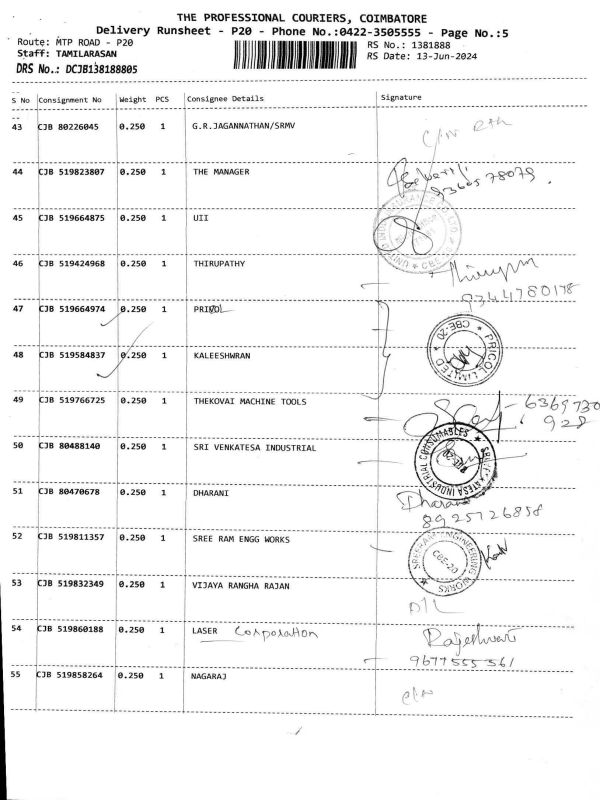 THE PROFESSIONAL COURIERS, COIMBATORE
Delivery Runsheet - P20 - Phone No.:0422-3505555 - Page No.:5
Route: MTP ROAD - P20 RS No.: 1381888
Staff: TAMILARASAN RS Date: 13-Jun-2024
DRS No.: DCJB138188805
S No Consignment No Weight PCS Consignee Details Signature
43 CJB 80226045 0.250 1 G.R.JAGANNATHAN/SRMV
44 CJB 519823807 0.250 1 THE MANAGER
45 CJB 519664875 0.250 1 UII
46 CJB 519424968 0.250 1 THIRUPATHY
9344780178
47 CJB 519664974 0.250 1 PRICOL
PRICOL LIMITED * CBE-20 *
48 CJB 519584837 0.250 1 KALEESHWRAN
49 CJB 519766725 0.250 1 THEKOVAI MACHINE TOOLS
6369730
928
50 CJB 80488140 0.250 1 SRI VENKATESA INDUSTRIAL
SRI VENKATESA INDUSTRIAL CONSUMABLES * CBE-20
51 CJB 80470678 0.250 1 DHARANI Dharani
8925726858
52 CJB 519811357 0.250 1 SREE RAM ENGG WORKS
SREERAM ENGINEERING WORKS * CBE-20
53 CJB 519832349 0.250 1 VIJAYA RANGHA RAJAN
54 CJB 519860188 0.250 1 LASER Corporation Rajeshwari
9677555361
55 CJB 519858264 0.250 1 NAGARAJ